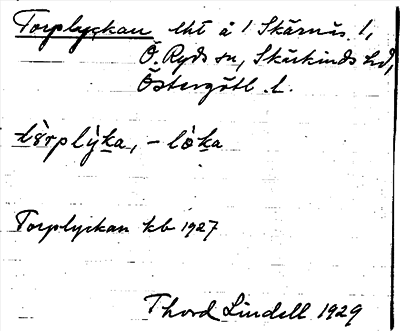 Torplyckan lht å 1 Skärnäs 1,
Ö. Ryds sn, Skärkinds hd,
Östergötl. l.
tò̀rplỳka, - lò̀ka
Torplyckan kb 1927
Thord Lindell 1929